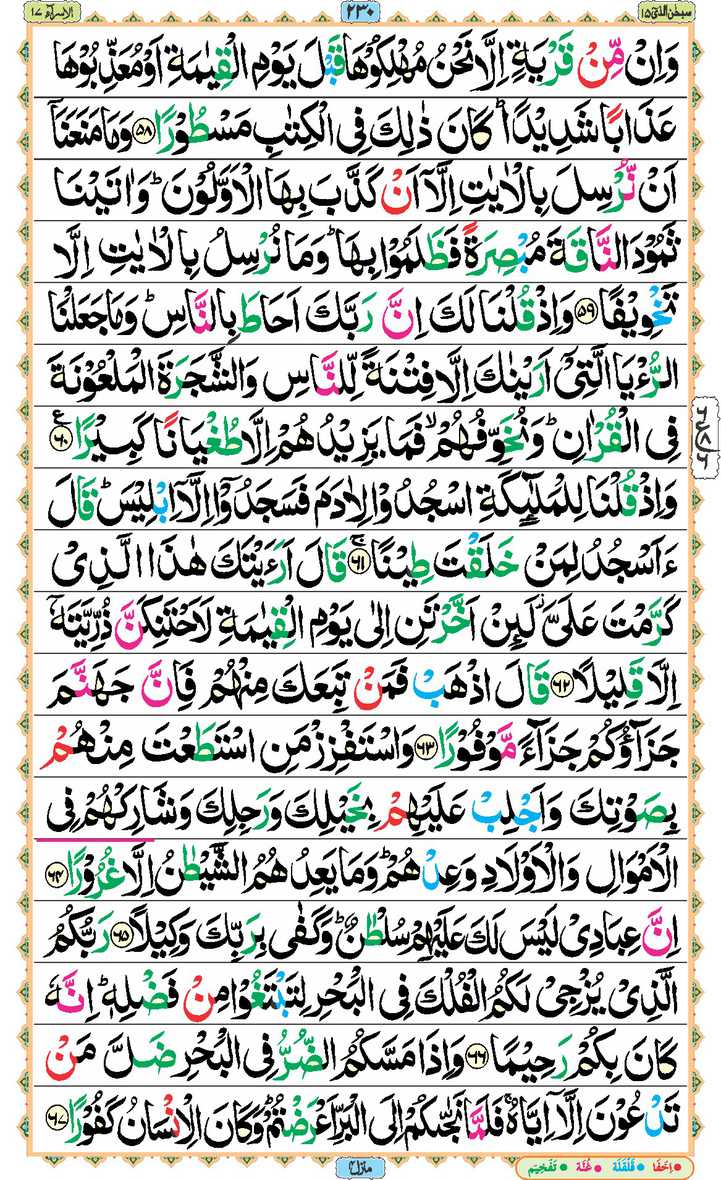 سبحٰن الذیٓ ۱۵
۲۳۰
الاسرآء ۱۷
وَاِنْ مِّنْ قَرْیَةٍ اِلَّا نَحْنُ مُهْلِكُوْهَا قَبْلَ یَوْمِ الْقِیٰمَةِ اَوْ مُعَذِّبُوْهَا
عَذَابًا شَدِیْدًا ؕ كَانَ ذٰلِكَ فِی الْكِتٰبِ مَسْطُوْرًا ۵۸ وَمَا مَنَعَنَاۤ
اَنْ نُّرْسِلَ بِالْاٰیٰتِ اِلَّاۤ اَنْ كَذَّبَ بِهَا الْاَوَّلُوْنَ ؕ وَاٰتَیْنَا
ثَمُوْدَ النَّاقَةَ مُبْصِرَةً فَظَلَمُوْا بِهَا ؕ وَمَا نُرْسِلُ بِالْاٰیٰتِ اِلَّا
تَخْوِیْفًا ۵۹ وَاِذْ قُلْنَا لَكَ اِنَّ رَبَّكَ اَحَاطَ بِالنَّاسِ ؕ وَمَا جَعَلْنَا
الرُّءْیَا الَّتِیْۤ اَرَیْنٰكَ اِلَّا فِتْنَةً لِّلنَّاسِ وَالشَّجَرَةَ الْمَلْعُوْنَةَ
فِی الْقُرْاٰنِ ؕ وَنُخَوِّفُهُمْ ۙ فَمَا یَزِیْدُهُمْ اِلَّا طُغْیَانًا كَبِیْرًا ۶۰ ع
وَاِذْ قُلْنَا لِلْمَلٰٓىِٕكَةِ اسْجُدُوْا لِاٰدَمَ فَسَجَدُوْۤا اِلَّاۤ اِبْلِیْسَ ؕ قَالَ
ءَاَسْجُدُ لِمَنْ خَلَقْتَ طِیْنًا ۶۱ ۚ قَالَ اَرَءَیْتَكَ هٰذَا الَّذِیْ
كَرَّمْتَ عَلَیَّ ؗ لَىِٕنْ اَخَّرْتَنِ اِلٰی یَوْمِ الْقِیٰمَةِ لَاَحْتَنِكَنَّ ذُرِّیَّتَهٗۤ
اِلَّا قَلِیْلًا ۶۲ قَالَ اذْهَبْ فَمَنْ تَبِعَكَ مِنْهُمْ فَاِنَّ جَهَنَّمَ
جَزَآؤُكُمْ جَزَآءً مَّوْفُوْرًا ۶۳ وَاسْتَفْزِزْ مَنِ اسْتَطَعْتَ مِنْهُمْ
بِصَوْتِكَ وَاَجْلِبْ عَلَیْهِمْ بِخَیْلِكَ وَرَجِلِكَ وَشَارِكْهُمْ فِی
الْاَمْوَالِ وَالْاَوْلَادِ وَعِدْهُمْ ؕ وَمَا یَعِدُهُمُ الشَّیْطٰنُ اِلَّا غُرُوْرًا ۶۴
اِنَّ عِبَادِیْ لَیْسَ لَكَ عَلَیْهِمْ سُلْطٰنٌ ؕ وَكَفٰی بِرَبِّكَ وَكِیْلًا ۶۵ رَبُّكُمُ
الَّذِیْ یُزْجِیْ لَكُمُ الْفُلْكَ فِی الْبَحْرِ لِتَبْتَغُوْا مِنْ فَضْلِهٖ ؕ اِنَّهٗ
كَانَ بِكُمْ رَحِیْمًا ۶۶ وَاِذَا مَسَّكُمُ الضُّرُّ فِی الْبَحْرِ ضَلَّ مَنْ
تَدْعُوْنَ اِلَّاۤ اِیَّاهُ ۚ فَلَمَّا نَجّٰىكُمْ اِلَی الْبَرِّ اَعْرَضْتُمْ ؕ وَكَانَ الْاِنْسَانُ كَفُوْرًا ۶۷
منزل ۴
اِخفَا قَلْقَلَة غُنَّة تَفْخِیْم